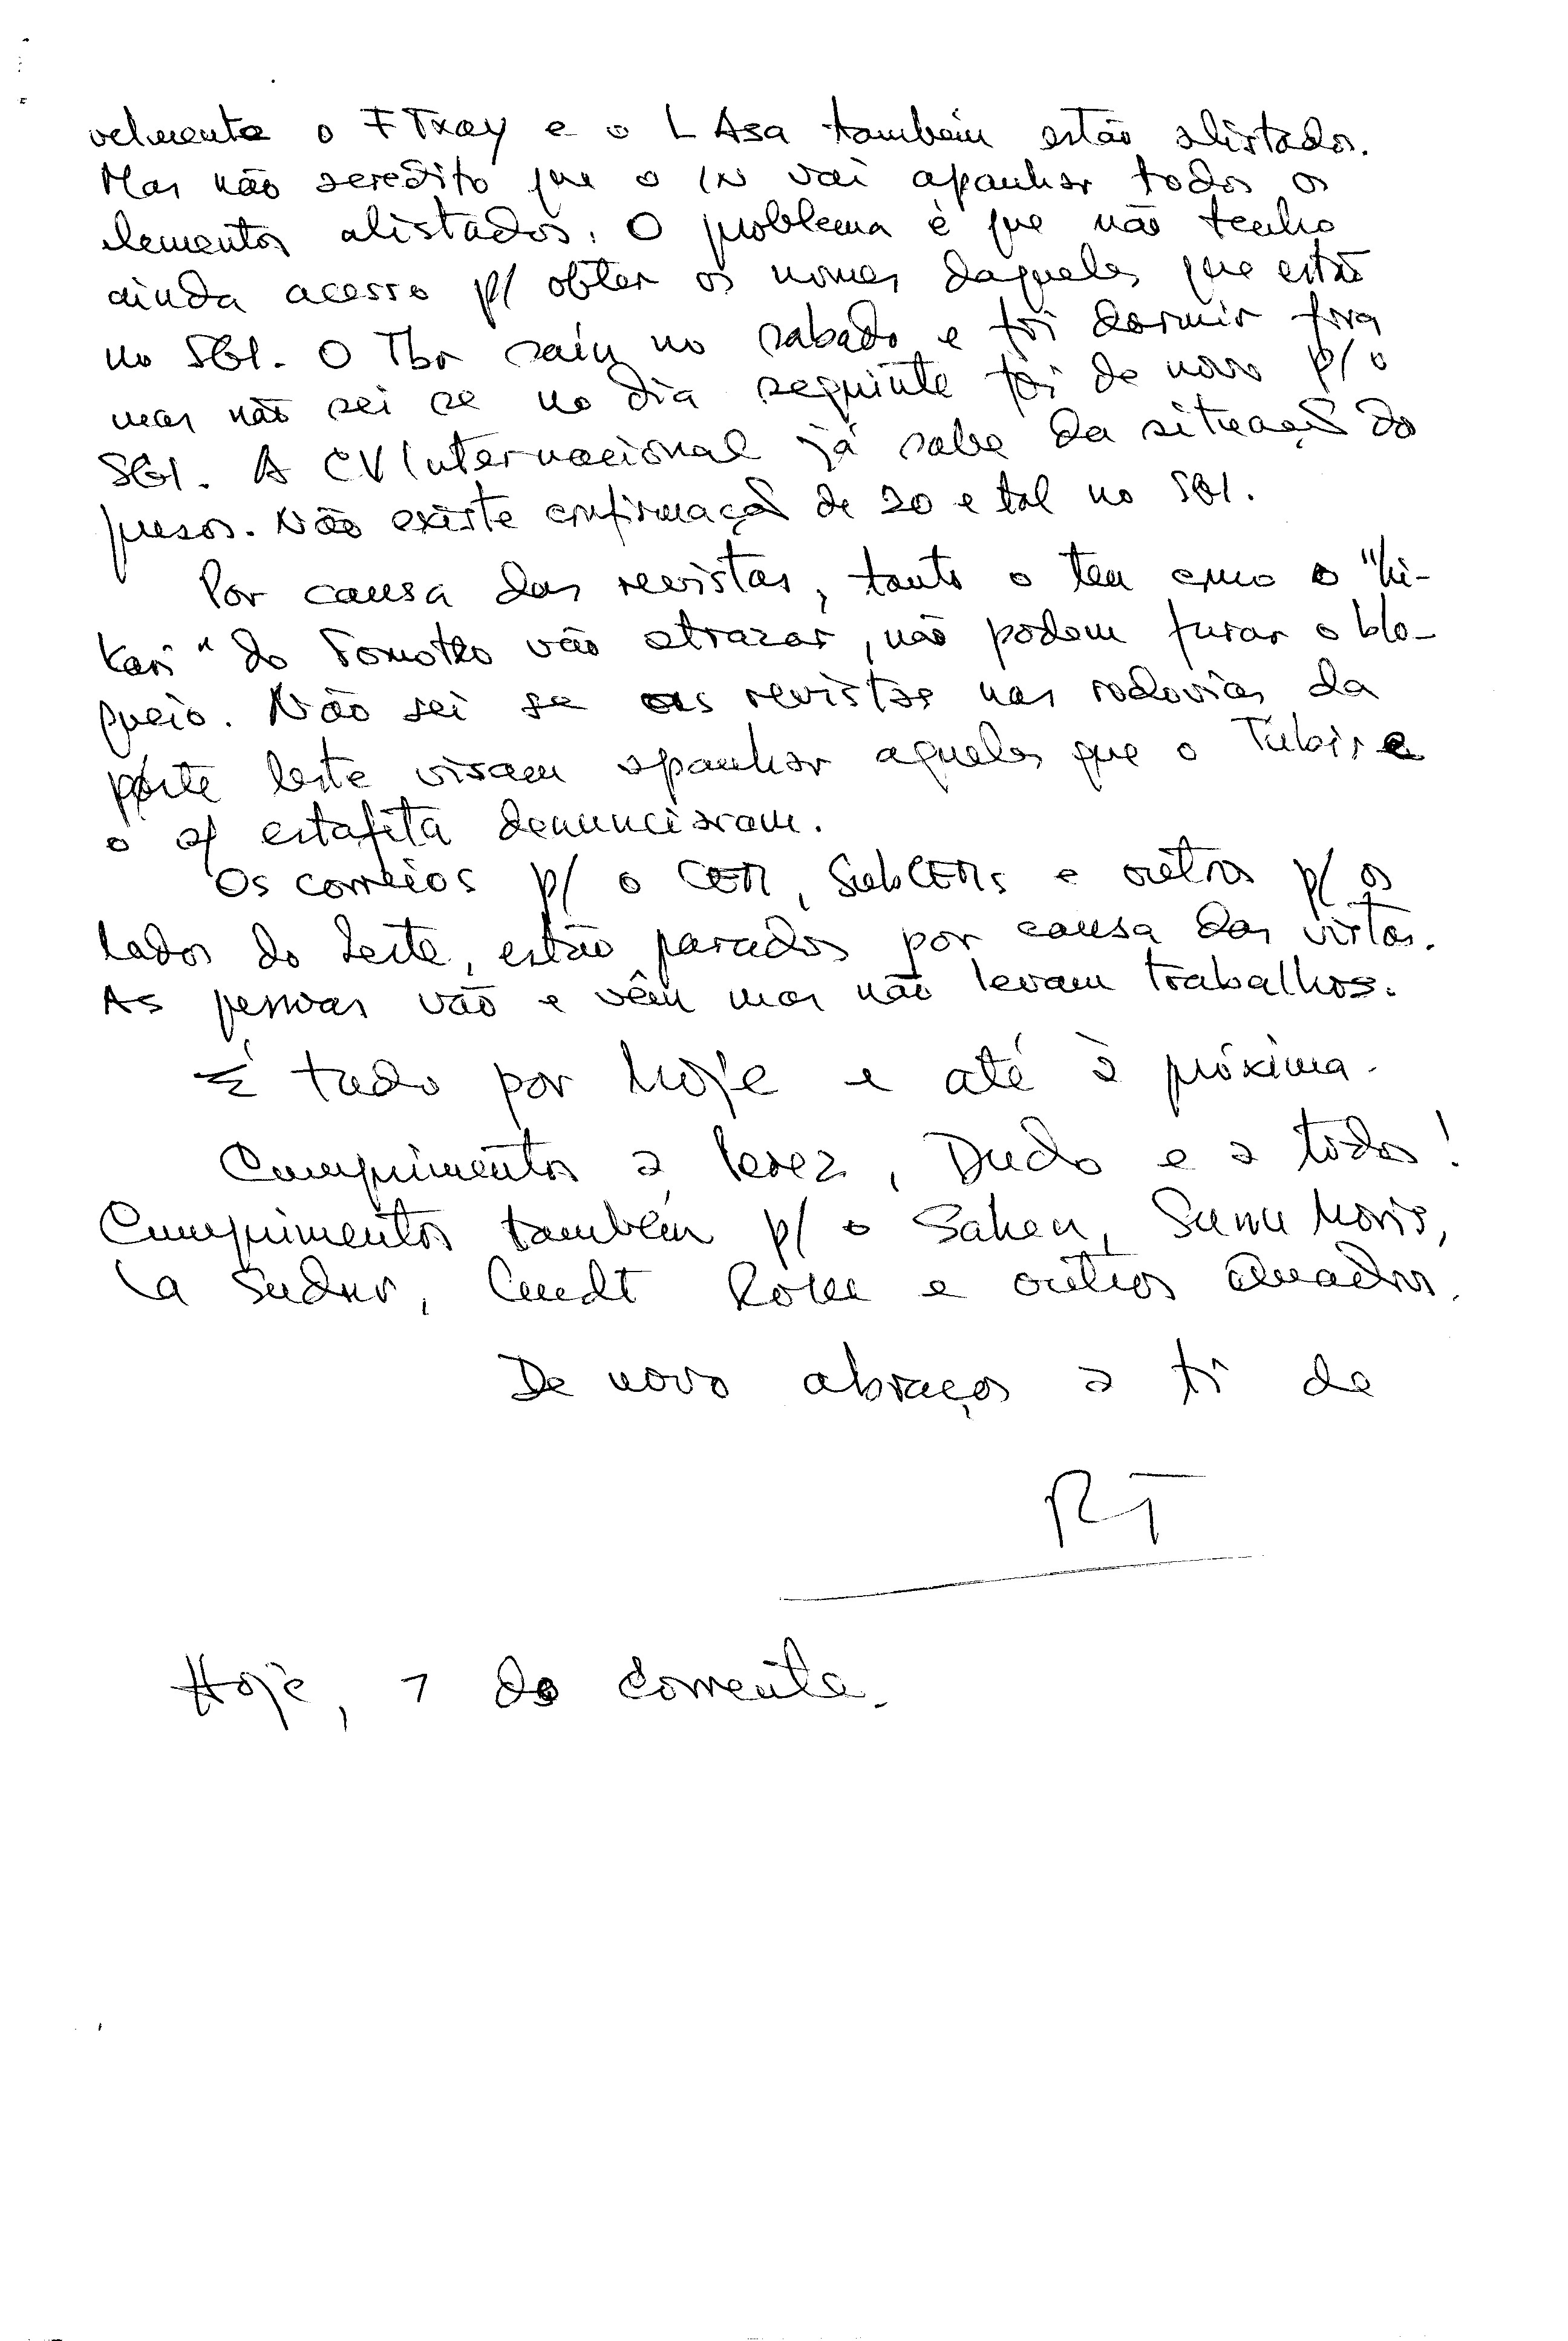 velmente o F Txay e o L Asa também estão alistados.
Mas não acredito que o IN vai apanhar todos os
elementos alistados. O problema é que não tenho
ainda acesso p/ obter os nomes daqueles que estão
no SGI. O Tbr saíu no sabado e foi dormir fora
mas não sei se no dia seguinte foi de novo p/ o
SGI. A CV Internacional já sabe da situação do
presos. Não existe confirmação de 20 e tal no SGI.
Por causa das revistas, tanto o teu como o "hi-
kari" do Fomotko vão atrazar, não podem furar o blo-
queio. Não sei se as revistas nas rodovias da
parte leste visam apanhar aqueles que o Tubir e
o of estafeta denunciaram.
Os correios p/ o CEM, SubCEMs e outros p/ os
lados do leste, estão parados por causa das vistas.
As pessoas vão e vêm mas não levam trabalhos.
É tudo por hoje e até à próxima.
Cumprimentos a Perez, Dudo e a todos!
Cumprimentos também p/ o Saken,
La Sudur, Cmdt e outros quadros.
De novo abraços a ti de
RT
Hoje, 7 do corrente.